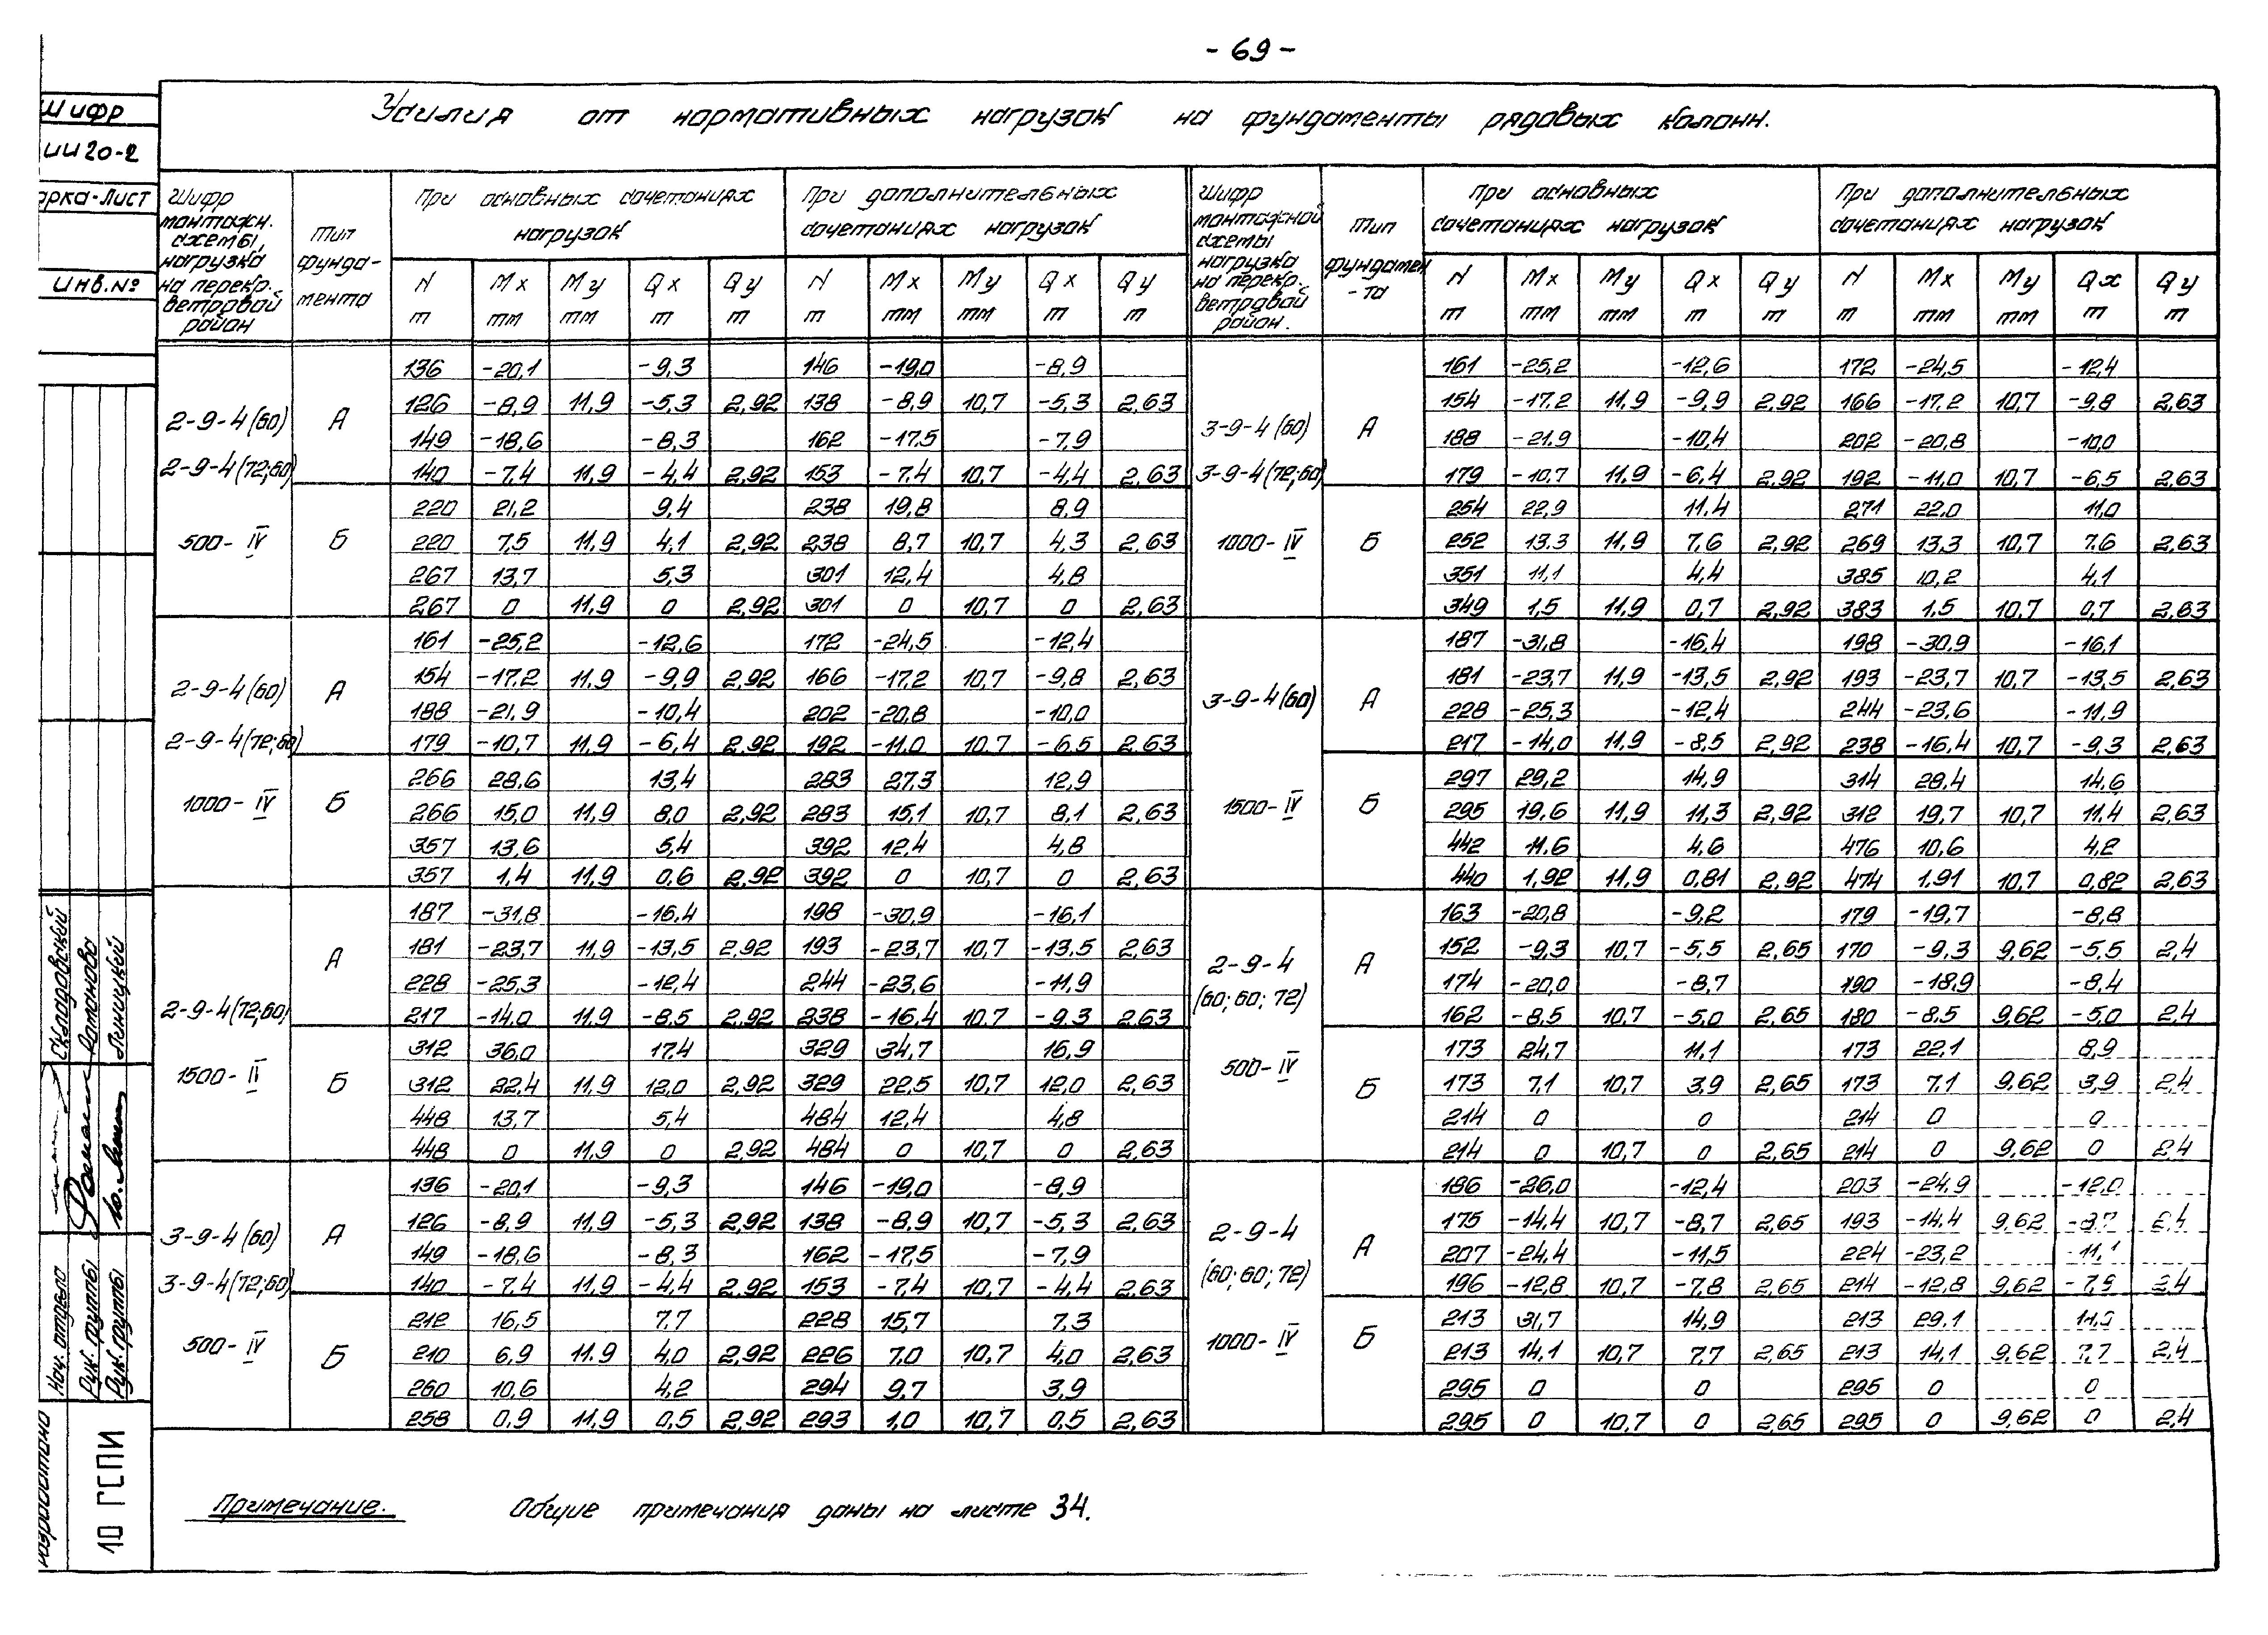 - 69 -
Шифр
ИИ20-2
арка-Лист
Инв.№
Усилия от нормативных нагрузок на фундаменты рядовых колонн.
Шифр монтажн. схемы, нагрузка на перекр. ветровой район
Тип фундамента
При основных сочетаниях нагрузок
При дополнительных сочетаниях нагрузок
Шифр монтажной схемы нагрузка на перекр. ветровой район.
Тип фундамен-та
При основных сочетаниях нагрузок
При дополнительных сочетаниях нагрузок
N т Mx тм My тм Qx т Qy т N т Mx тм My тм Qx т Qy т
N т Mx тм My тм Qx т Qy т N т Mx тм My тм Qx т Qy т
2-9-4(60)
2-9-4(72;60)
500-IV
А
136 -20,1 -9,3 146 -19,0 -8,9
126 -8,9 11,9 -5,3 2,92 138 -8,9 10,7 -5,3 2,63
149 -18,6 -8,3 162 -17,5 -7,9
140 -7,4 11,9 -4,4 2,92 153 -7,4 10,7 -4,4 2,63
Б
220 21,2 9,4 238 19,8 8,9
220 7,5 11,9 4,1 2,92 238 8,7 10,7 4,3 2,63
267 13,7 5,3 301 12,4 4,8
267 0 11,9 0 2,92 301 0 10,7 0 2,63
2-9-4(60)
2-9-4(72;60)
1000-IV
А
161 -25,2 -12,6 172 -24,5 -12,4
154 -17,2 11,9 -9,9 2,92 166 -17,2 10,7 -9,8 2,63
188 -21,9 -10,4 202 -20,8 -10,0
179 -10,7 11,9 -6,4 2,92 192 -11,0 10,7 -6,5 2,63
Б
266 28,6 13,4 283 27,3 12,9
266 15,0 11,9 8,0 2,92 283 15,1 10,7 8,1 2,63
357 13,6 5,4 392 12,4 4,8
357 1,4 11,9 0,6 2,92 392 0 10,7 0 2,63
2-9-4(72;60)
1500-IV
А
187 -31,8 -16,4 198 -30,9 -16,1
181 -23,7 11,9 -13,5 2,92 193 -23,7 10,7 -13,5 2,63
228 -25,3 -12,4 244 -23,6 -11,9
217 -14,0 11,9 -8,5 2,92 238 -16,4 10,7 -9,3 2,63
Б
312 36,0 17,4 329 34,7 16,9
312 22,4 11,9 12,0 2,92 329 22,5 10,7 12,0 2,63
448 13,7 5,4 484 12,4 4,8
448 0 11,9 0 2,92 484 0 10,7 0 2,63
3-9-4(60)
3-9-4(72;60)
500-IV
А
136 -20,1 -9,3 146 -19,0 -8,9
126 -8,9 11,9 -5,3 2,92 138 -8,9 10,7 -5,3 2,63
149 -18,6 -8,3 162 -17,5 -7,9
140 -7,4 11,9 -4,4 2,92 153 -7,4 10,7 -4,4 2,63
Б
212 16,5 7,7 228 15,7 7,3
210 6,9 11,9 4,0 2,92 226 7,0 10,7 4,0 2,63
260 10,6 4,2 294 9,7 3,9
258 0,9 11,9 0,5 2,92 293 1,0 10,7 0,5 2,63
3-9-4(60)
3-9-4(72;60)
1000-IV
А
161 -25,2 -12,6 172 -24,5 -12,4
154 -17,2 11,9 -9,9 2,92 166 -17,2 10,7 -9,8 2,63
188 -21,9 -10,4 202 -20,8 -10,0
179 -10,7 11,9 -6,4 2,92 192 -11,0 10,7 -6,5 2,63
Б
254 22,9 11,4 271 22,0 11,0
252 13,3 11,9 7,6 2,92 269 13,3 10,7 7,6 2,63
351 11,1 4,4 385 10,2 4,1
349 1,5 11,9 0,7 2,92 383 1,5 10,7 0,7 2,63
3-9-4(60)
1500-IV
А
187 -31,8 -16,4 198 -30,9 -16,1
181 -23,7 11,9 -13,5 2,92 193 -23,7 10,7 -13,5 2,63
228 -25,3 -12,4 244 -23,6 -11,9
217 -14,0 11,9 -8,5 2,92 238 -16,4 10,7 -9,3 2,63
Б
297 29,2 14,9 314 28,4 14,6
295 19,6 11,9 11,3 2,92 312 19,7 10,7 11,4 2,63
442 11,6 4,6 476 10,6 4,2
440 1,92 11,9 0,81 2,92 474 1,91 10,7 0,82 2,63
2-9-4
(60; 60; 72)
500-IV
А
163 -20,8 -9,2 179 -19,7 -8,8
152 -9,3 10,7 -5,5 2,65 170 -9,3 9,62 -5,5 2,4
174 -20,0 -8,7 190 -18,9 -8,4
162 -8,5 10,7 -5,0 2,65 180 -8,5 9,62 -5,0 2,4
Б
173 24,7 11,1 173 22,1 8,9
173 7,1 10,7 3,9 2,65 173 7,1 9,62 3,9 2,4
214 0 0 214 0 0
214 0 10,7 0 2,65 214 0 9,62 0 2,4
2-9-4
(60; 60; 72)
1000-IV
А
186 -26,0 -12,4 203 -24,9 -12,0
175 -14,4 10,7 -8,7 2,65 193 -14,4 9,62 -8,7 2,4
207 -24,4 -11,5 224 -23,2 -11,1
196 -12,8 10,7 -7,8 2,65 214 -12,8 9,62 2,4
Б
213 31,7 14,9 213 29,1
213 14,1 10,7 7,7 2,65 213 14,1 9,62 7,7 2,4
295 0 0 295 0 0
295 0 10,7 0 2,65 295 0 9,62 0 2,4
Примечание. Общие примечания даны на листе 34.
Нач. отдела
Складовский
Рук. группы
Рук. группы
10 ГСПИ